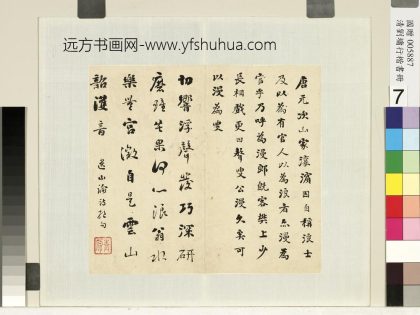 远方书画网-www.yfshuhua.com
國贈 005887
清劉墉行楷書冊
7
唐元次山家瀼濱因自稱浪士
及以為有官人以為浪者亦漫為
官乎乃呼為漫郎既客樊上少
長相戲更曰聱叟公漫久矣可
以漫為叟
切響浮聲發巧深研
磨雖苦果何心浪翁水
樂無宮徵自是雲山
韶濩音 遺山論詩絕句